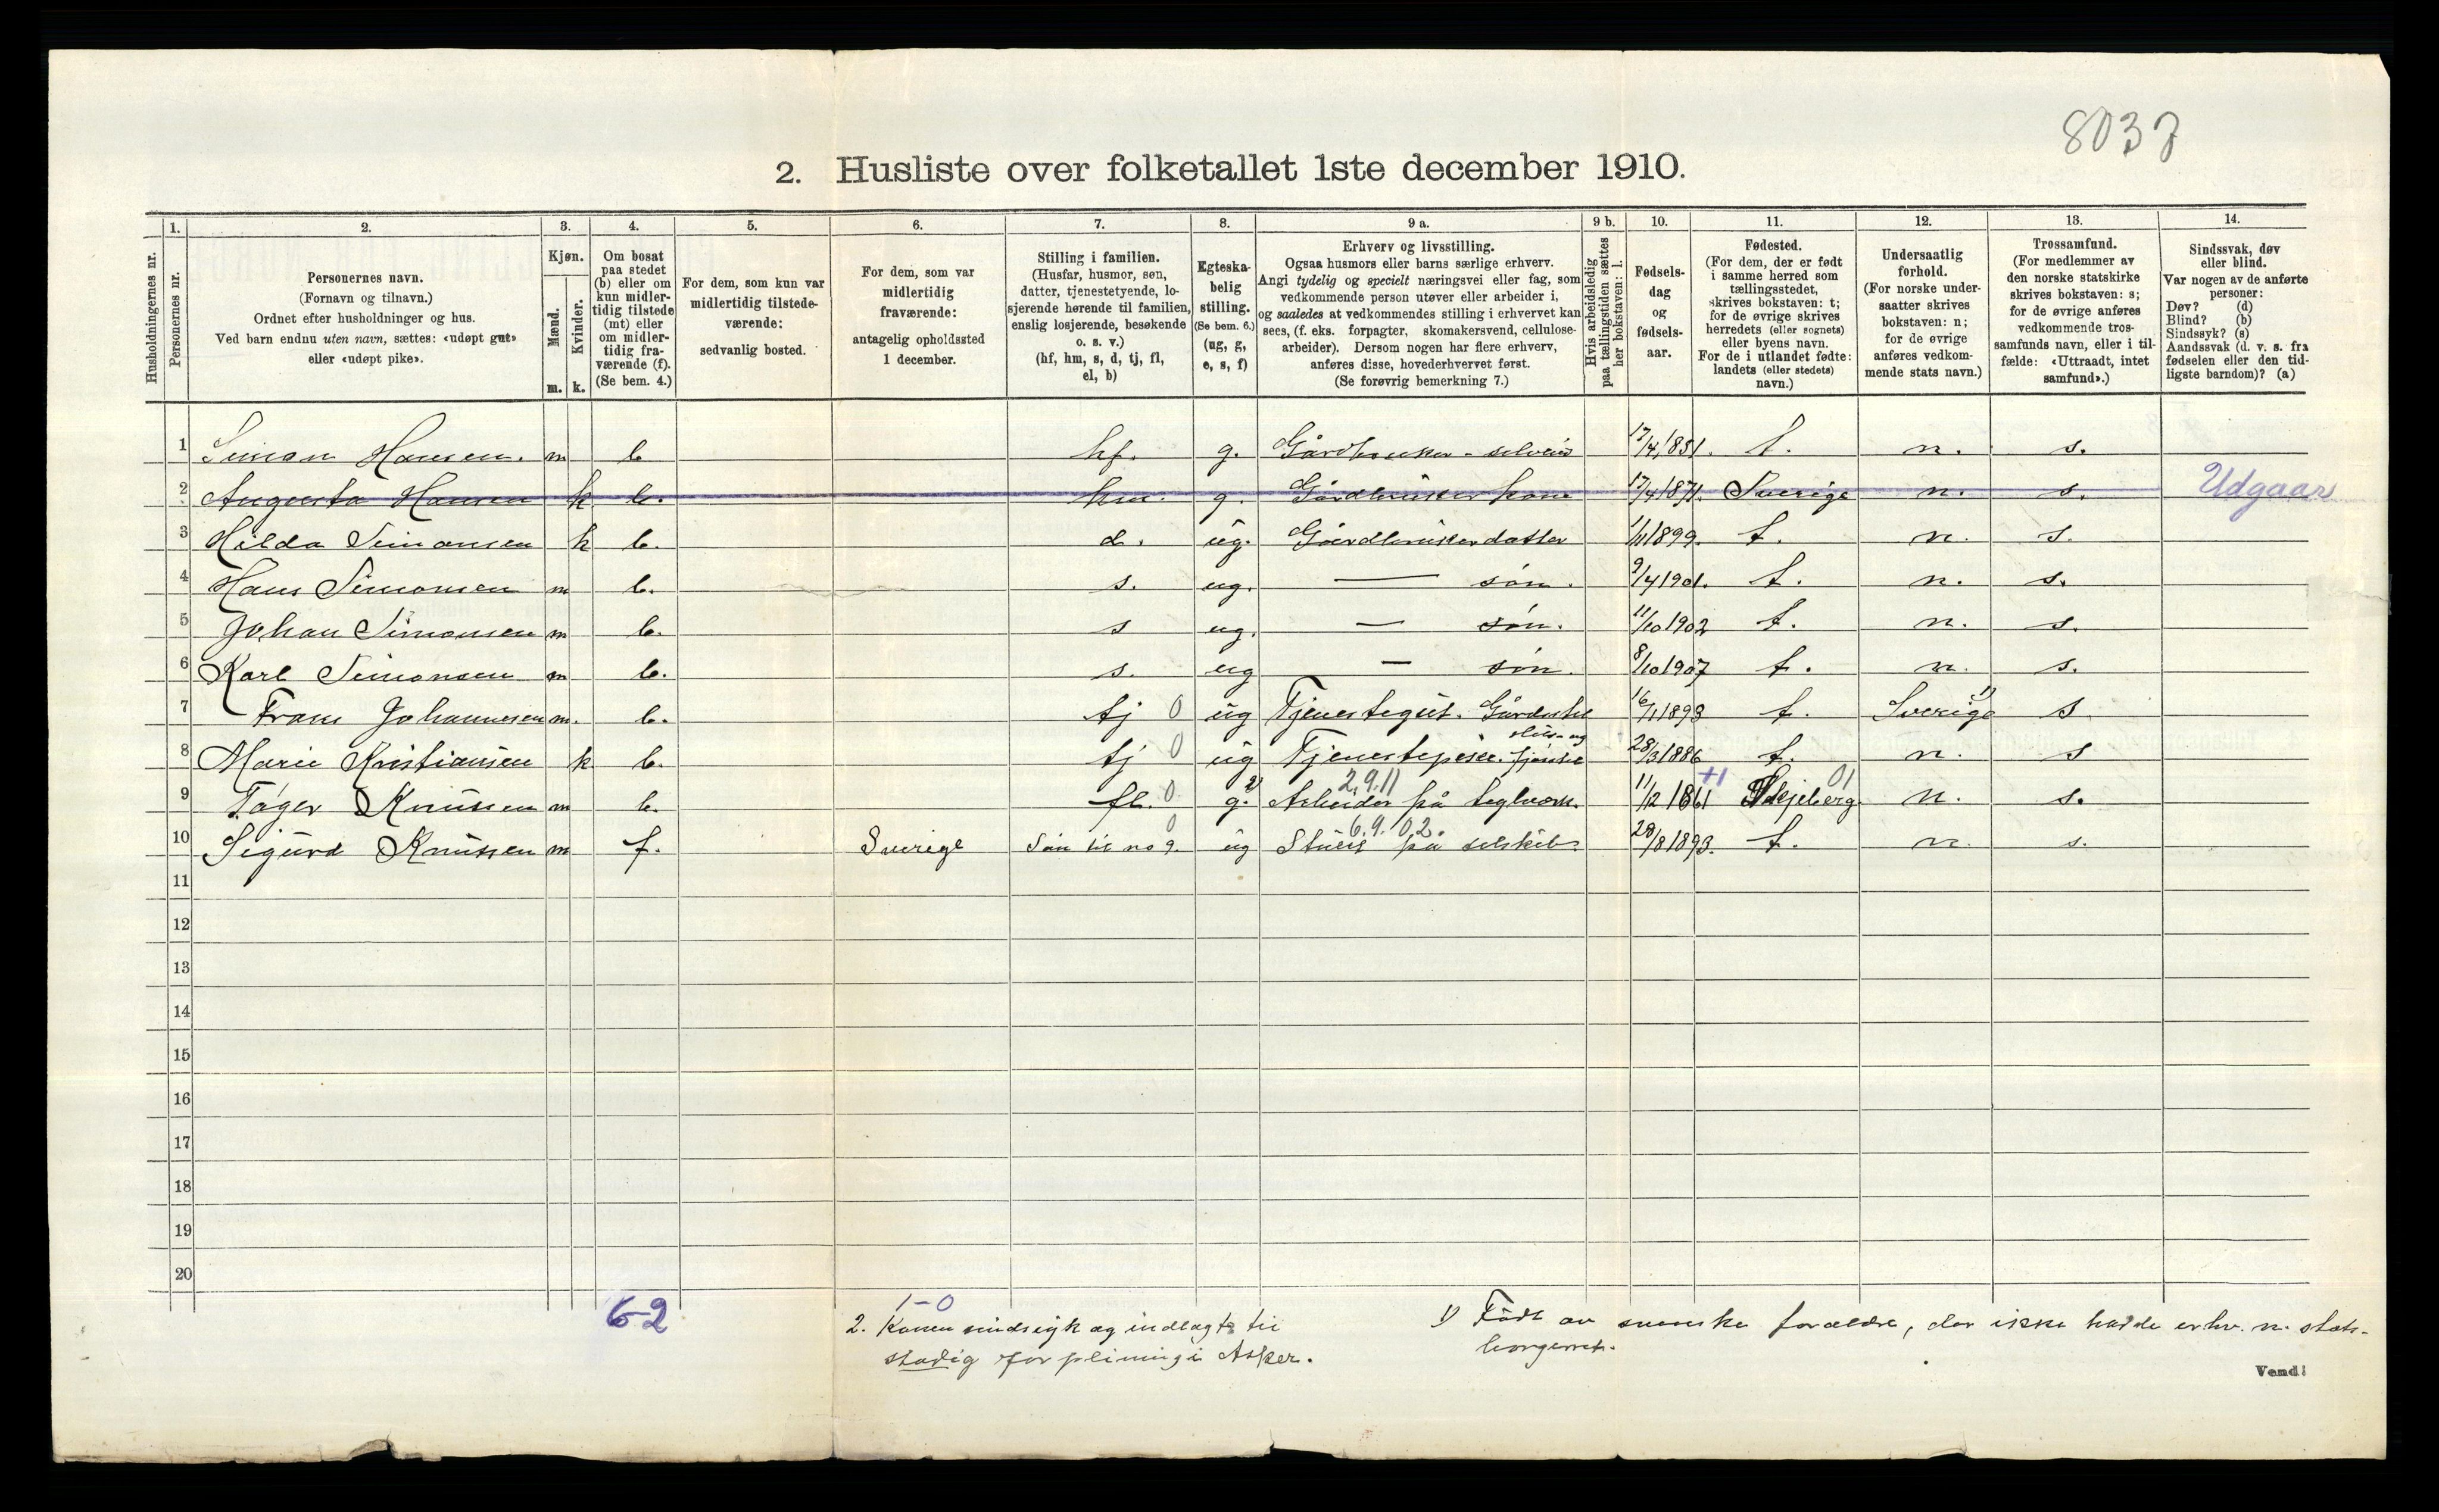 8037
2. Husliste over folketallet 1ste december 1910.
1. 2. 3. 4. 5. 6. 7. 8. 9 a. 9 b. 10. 11. 12. 13. 14.
Husholdningernes nr.
Personernes nr.
Personernes navn.
(Fornavn og tilnavn.)
Ordnet efter husholdninger og hus.
Ved barn endnu uten navn, sættes: «udøpt gut»
eller «udøpt pike».
Kjøn.
Mænd.
Kvinder.
m. k.
Om bosat
paa stedet
(b) eller om
kun midler-
tidig tilstede
(mt) eller
om midler-
tidig fra-
værende (f).
(Se bem. 4.)
For dem, som kun var
midlertidig tilstede-
værende:
sedvanlig bosted.
For dem, som var
midlertidig
fraværende:
antagelig opholdssted
1 december.
Stilling i familien.
(Husfar, husmor, søn,
datter, tjenestetyende, lo-
sjerende hørende til familien,
enslig losjerende, besøkende
o. s. v.)
(hf, hm, s, d, tj, fl,
el, b)
Egteska-
belig
stilling.
(Se bem. 6.)
(ug, g,
e, s, f)
Erhverv og livsstilling.
Ogsaa husmors eller barns særlige erhverv.
Angi tydelig og specielt næringsvei eller fag, som
vedkommende person utøver eller arbeider i,
og saaledes at vedkommendes stilling i erhvervet kan
sees, (f. eks. forpagter, skomakersvend, cellulose-
arbeider). Dersom nogen har flere erhverv,
anføres disse, hovederhvervet først.
(Se forøvrig bemerkning 7.)
Hvis arbeidsledig
paa tællingstiden sættes
her bokstaven: l.
Fødsels-
dag
og
fødsels-
aar.
Fødested.
(For dem, der er født
i samme herred som
tællingsstedet,
skrives bokstaven: t;
for de øvrige skrives
herredets (eller sognets)
eller byens navn.
For de i utlandet fødte:
landets (eller stedets)
navn.)
Undersaatlig
forhold.
(For norske under-
saatter skrives
bokstaven: n;
for de øvrige
anføres vedkom-
mende stats navn.)
Trossamfund.
(For medlemmer av
den norske statskirke
skrives bokstaven: s;
for de øvrige anføres
vedkommende tros-
samfunds navn, eller i til-
fælde: «Uttraadt, intet
samfund».)
Sindssvak, døv
eller blind.
Var nogen av de anførte
personer:
Døv? (d)
Blind? (b)
Sindssyk? (s)
Aandssvak (d. v. s. fra
fødselen eller den tid-
ligste barndom)? (a)
1 Simon Hansen. m b hf. g. Gårdbruker - selveier 17/4 1851. t. n. s.
2 Augusta Hansen k b. hm. g. Gårdbruker kone 17/4 1871. Sverige n. s. Udgaar
3 Hilda Simonsen k b. d. ug. Gårdbruker datter 1/11 1899. t. n. s.
4 Hans Simonsen m b. s. ug. — søn. 9/4 1901. t. n. s.
5 Johan Simonsen m b. s ug. — søn. 11/10 1902 t. n. s.
6 Karl Simonsen m b. s. ug — søn. 8/10 1907 t. n. s.
7 Frans Johannesen m. b. tj 0 ug Tjenestegut. 16/1 1893 t. Sverige 1) s
8 Marie Kristiansen k b. tj 0 ug 28/3 1886 t. n. s
9 Tøger Knussen m b. fl. 0 g. 2) 2.9.11 Arbeider på teglverk. 11/12 1861 +1 Skjeberg 01 n. s.
10 Sigurd Knussen m f. Sverige Søn til no 9. 0 ug 6.9.02. Stuert på seilskib. 28/8 1893. t. n. s.
11
12
13
14
15
16
17
18
19
20
6-2
1-0
2. Konen sindssyk og indlagt til
stadig forpleining i Asker.
1) Født av svenske forældre, der ikke hadde erhv. n. stats-
borgerret.
Vend!